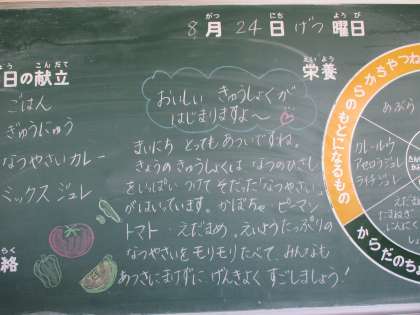 8月24日げつ曜日
がつ にち ようび
日の献立
こんだて
ごはん
ぎゅうにゅう
なつやさいカレー
ミックスジュレ
おいしい きゅうしょくが
はじまりますよ〜
まいにち とってもあついですね。
きょうのきゅうしょくは なつのひざし
をいっぱい つけて そだった"なつやさい"
がはいっています。かぼちゃ・ピーマン
トマト・えだまめ。えいようたっぷりの
なつやさいをモリモリたべて、みんなも
あつさにまけずに、げんきよく すごしましょう!
栄養
えいよう
のもとになるもの
あぶら
カレールウ
アセロラジュレ
ライチジュレ
えだま
たまねぎ
にんにく
からだのちょ
絡
らく